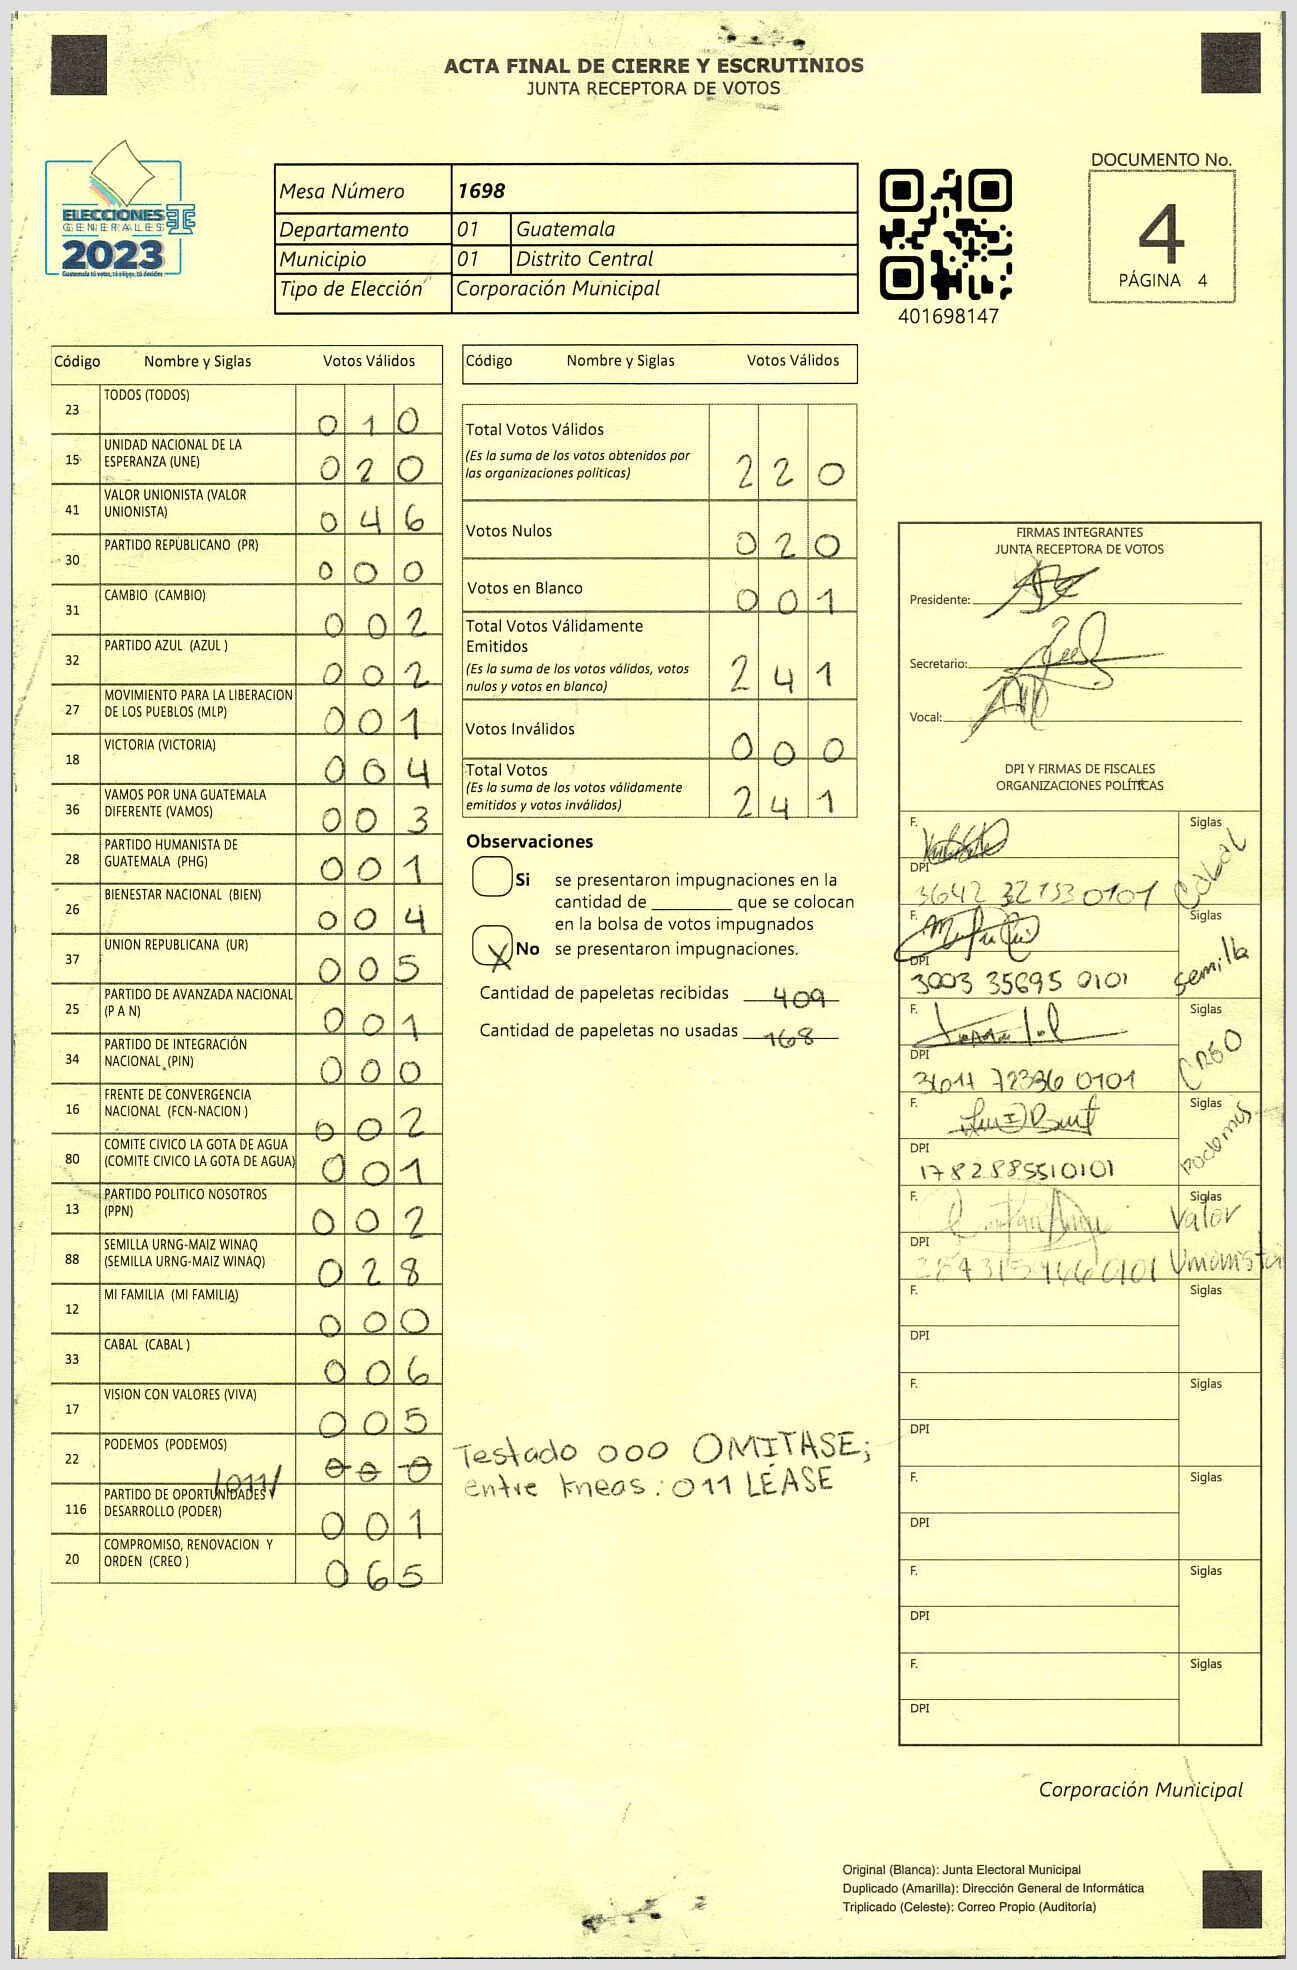 ACTA FINAL DE CIERRE Y ESCRUTINIOS
JUNTA RECEPTORA DE VOTOS
ELECCIONES
GENERALES
2023
Guatemala tú votas, tú eliges, tú decides
Mesa Número 1698
Departamento 01 Guatemala
Municipio 01 Distrito Central
Tipo de Elección Corporación Municipal
401698147
DOCUMENTO No.
4
PÁGINA 4
Código Nombre y Siglas Votos Válidos
23 TODOS (TODOS) 0 1 0
15 UNIDAD NACIONAL DE LA
ESPERANZA (UNE) 0 2 0
41 VALOR UNIONISTA (VALOR
UNIONISTA) 0 4 6
30 PARTIDO REPUBLICANO (PR) 0 0 0
31 CAMBIO (CAMBIO) 0 0 2
32 PARTIDO AZUL (AZUL ) 0 0 2
27 MOVIMIENTO PARA LA LIBERACION
DE LOS PUEBLOS (MLP) 0 0 1
18 VICTORIA (VICTORIA) 0 0 4
36 VAMOS POR UNA GUATEMALA
DIFERENTE (VAMOS) 0 0 3
28 PARTIDO HUMANISTA DE
GUATEMALA (PHG) 0 0 1
26 BIENESTAR NACIONAL (BIEN) 0 0 4
37 UNION REPUBLICANA (UR) 0 0 5
25 PARTIDO DE AVANZADA NACIONAL
(P A N) 0 0 1
34 PARTIDO DE INTEGRACIÓN
NACIONAL (PIN) 0 0 0
16 FRENTE DE CONVERGENCIA
NACIONAL (FCN-NACION ) 0 0 2
80 COMITE CIVICO LA GOTA DE AGUA
(COMITE CIVICO LA GOTA DE AGUA) 0 0 1
13 PARTIDO POLITICO NOSOTROS
(PPN) 0 0 2
88 SEMILLA URNG-MAIZ WINAQ
(SEMILLA URNG-MAIZ WINAQ) 0 2 8
12 MI FAMILIA (MI FAMILIA) 0 0 0
33 CABAL (CABAL ) 0 0 6
17 VISION CON VALORES (VIVA) 0 0 5
22 PODEMOS (PODEMOS) 0 0 0
/011/
116 PARTIDO DE OPORTUNIDADES Y
DESARROLLO (PODER) 0 0 1
20 COMPROMISO, RENOVACION Y
ORDEN (CREO ) 0 6 5
Código Nombre y Siglas Votos Válidos
Total Votos Válidos
(Es la suma de los votos obtenidos por
las organizaciones políticas) 2 2 0
Votos Nulos 0 2 0
Votos en Blanco 0 0 1
Total Votos Válidamente
Emitidos
(Es la suma de los votos válidos, votos
nulos y votos en blanco) 2 4 1
Votos Inválidos 0 0 0
Total Votos
(Es la suma de los votos válidamente
emitidos y votos inválidos) 2 4 1
Observaciones
Si se presentaron impugnaciones en la
cantidad de ________ que se colocan
en la bolsa de votos impugnados
X No se presentaron impugnaciones.
Cantidad de papeletas recibidas 409
Cantidad de papeletas no usadas 168
Testado 000 OMITASE;
entre líneas: 011 LÉASE
FIRMAS INTEGRANTES
JUNTA RECEPTORA DE VOTOS
Presidente:
Secretario:
Vocal:
DPI Y FIRMAS DE FISCALES
ORGANIZACIONES POLÍTICAS
F. Siglas
DPI Cabal
3642 32153 0101
F. Siglas
DPI semilla
3003 35695 0101
F. Siglas
DPI CREO
0101
F. Siglas
DPI Podemos
1782885510101
F. Siglas
Valor
DPI Unionista
F. Siglas
DPI
F. Siglas
DPI
F. Siglas
DPI
F. Siglas
DPI
F. Siglas
DPI
Corporación Municipal
Original (Blanca): Junta Electoral Municipal
Duplicado (Amarilla): Dirección General de Informática
Triplicado (Celeste): Correo Propio (Auditoría)